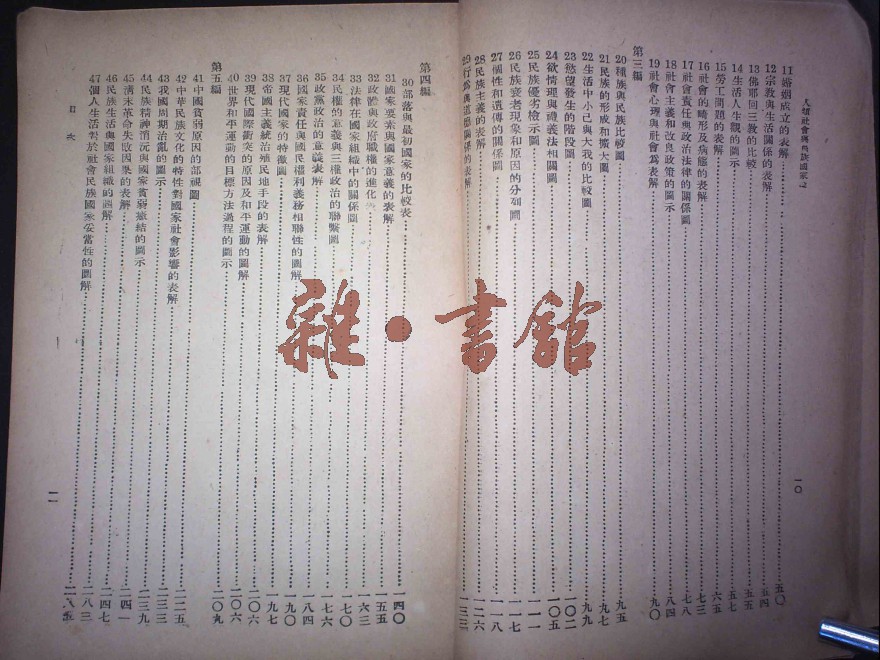 人類社會與民族國家論
11婚姻成立的表解……五〇
12宗教與生活關係的表解……五四
13佛耶回三教的比較……五五
14生活人生觀的圖示……五七
15勞工問題的表解……六五
16社會的畸形及病態的表解……七三
17社會責任與政治法律的關係圖……七八
18社會主義和改良政策的圖示……八四
19社會心理與社會爲表解……九〇
第三編
20種族與民族比較圖……九五
21民族的形成和擴大圖……九七
22生活中小己與大我的比較圖……九九
23慾望發生的階段圖……一〇二
24欲情理與禮義法相關圖……一〇五
25民族優劣檢示圖……一一一
26民族衰老現象和原因的分列圖……一一七
27個性和遺傳的關係圖……一一八
28民族主義的表解……一二六
29行爲與道學關係的表解……一三三
一〇
第四編
30部落與最初國家的比較表……一四〇
31國家要素與國家意義的表解……一五五
32政體與政府職權的進化……一六三
33法律在國家組織中的關係圖……一七〇
34民權的意義與三權政治的聯繫圖……一七六
35政黨政治的意議表解……一八四
36國家責任與國民權利義務相聯性的圖解……一九〇
37現代國家的特徵圖……一九七
38帝國主義統治殖民地手段的表解……二〇六
39現代國際衝突的原因及和平運動的圖解……二〇六
40世界和平運動的目標方法過程的圖示……二〇九
第五編
41中國貧弱原因的部視圖……二二五
42中華民族文化的特性對國家社會影響的表解……二三三
43我國周期治亂的圖示……二三九
44民族精神消沉與國家貧弱癥結的圖示……二四一
45淸末革命失敗因果的表解……二四七
46民族生活與國家組織的圖解……二八三
47個人生活對於社會民族國家妥當性的圖解……二八五
目 次
一一
雜·書館